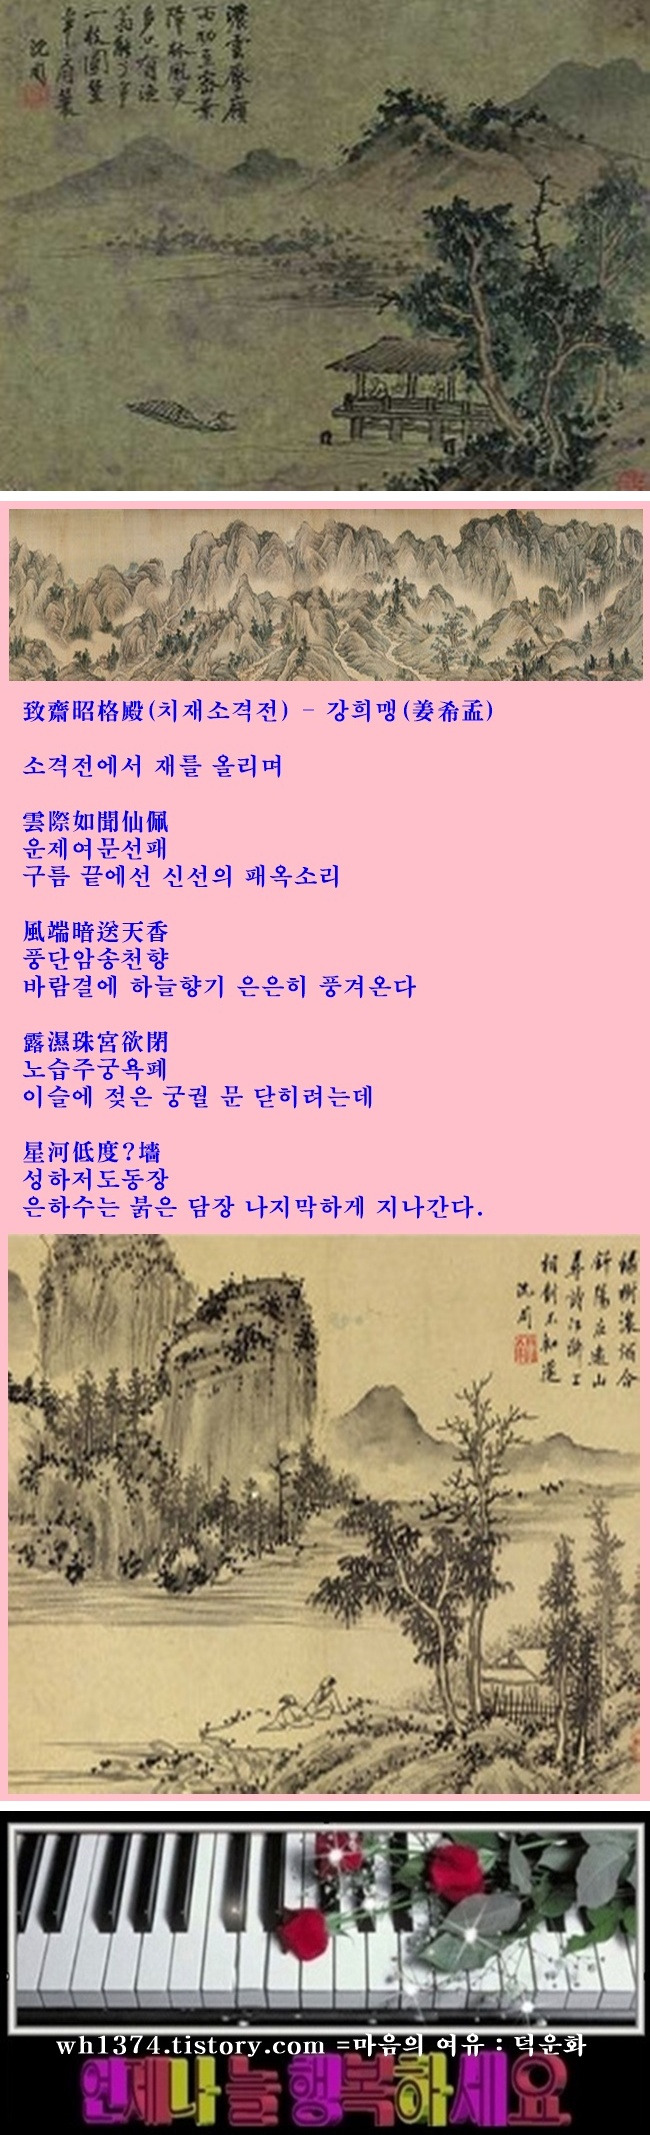 濃雲壓嶺
沈周
致齋昭格殿(치재소격전) - 강희맹(姜希孟)
소격전에서 재를 올리며
雲際如聞仙佩
운제여문선패
구름 끝에선 신선의 패옥소리
風端暗送天香
풍단암송천향
바람결에 하늘향기 은은히 풍겨온다
露濕珠宮欲閉
노습주궁욕폐
이슬에 젖은 궁궐 문 닫히려는데
星河低度?墻
성하저도동장
은하수는 붉은 담장 나지막하게 지나간다.
相對不知還
沈周
wh1374.tistory.com =마음의 여유 : 덕운화
언제나 늘 행복하세요